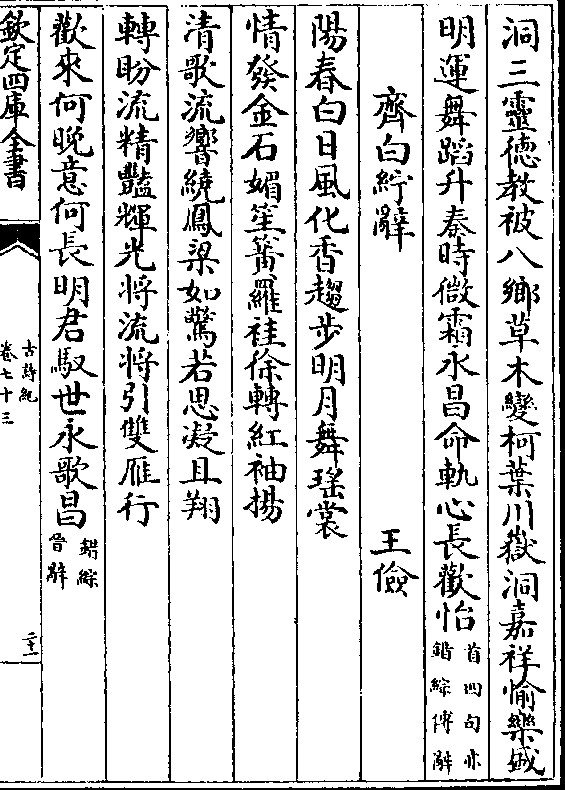 洞三靈德教被八鄉草木變柯葉川嶽洞嘉祥愉樂盛
明運舞蹈升泰時微霜永昌命軌心長歡怡首四句亦錯綜傅辭
齊白紵辭 王儉
陽春白日風化香趨步明月舞瑤裳
情發金石媚笙簧羅袿徐轉紅袖揚
清歌流響繞鳳梁如驚若思凝且翔
轉盼流精豔輝光將流將引雙雁行
歡來何晚意何長明君馭世永歌昌錯綜晉辭
欽定四庫全書
古詩紀
卷七十三
二十一